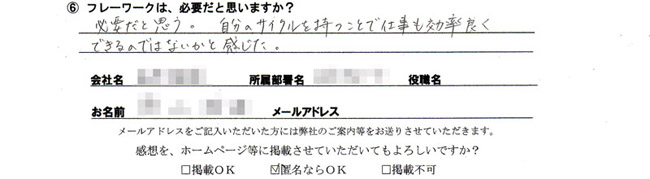 ⑥ フレーワークは、必要だと思いますか?
必要だと思う。 自分のサイクルを持つことで仕事も効率良く
できるのではないかと感じた。
会社名 所属部署名 役職名
お名前 メールアドレス
メールアドレスをご記入いただいた方には弊社のご案内等をお送りさせていただきます。
感想を、ホームページ等に掲載させていただいてもよろしいですか?
□掲載OK ☑匿名ならOK □掲載不可